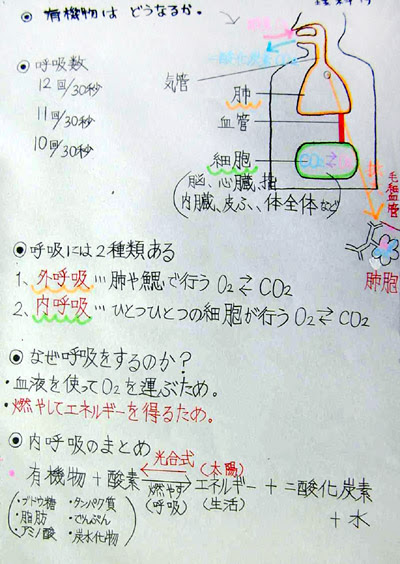 ◉ 有機物は どうなるか。
◉ 呼吸数
12回/30秒
11回/30秒
10回/30秒
二酸化炭素
気管
肺
血管
細胞
CO₂ ⇄
(脳、心臓、指
内臓、皮ふ、体全体など)
拡
毛細血管
肺胞
◉ 呼吸には2種類ある
1、外呼吸…肺や鰓で行う O₂ ⇄ CO₂
2、内呼吸…ひとつひとつの細胞が行う O₂ ⇄ CO₂
◉ なぜ呼吸をするのか?
・血液を使ってO₂を運ぶため。
・燃やしてエネルギーを得るため。
◉ 内呼吸のまとめ
光合式 (太陽)
・有機物 + 酸素 ⇄ エネルギー + 二酸化炭素
燃やす
(呼吸) (生活)
+ 水
・ブドウ糖 ・タンパク質
・脂肪 ・でんぷん
・アミノ酸 ・炭水化物